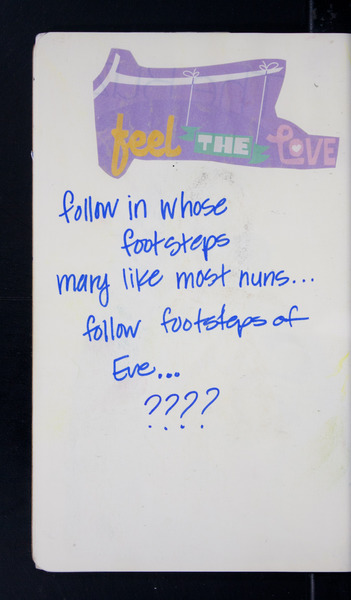 feel THE LOVE
follow in whose
footsteps
mary like most nuns...
follow footsteps of
Eve...
????